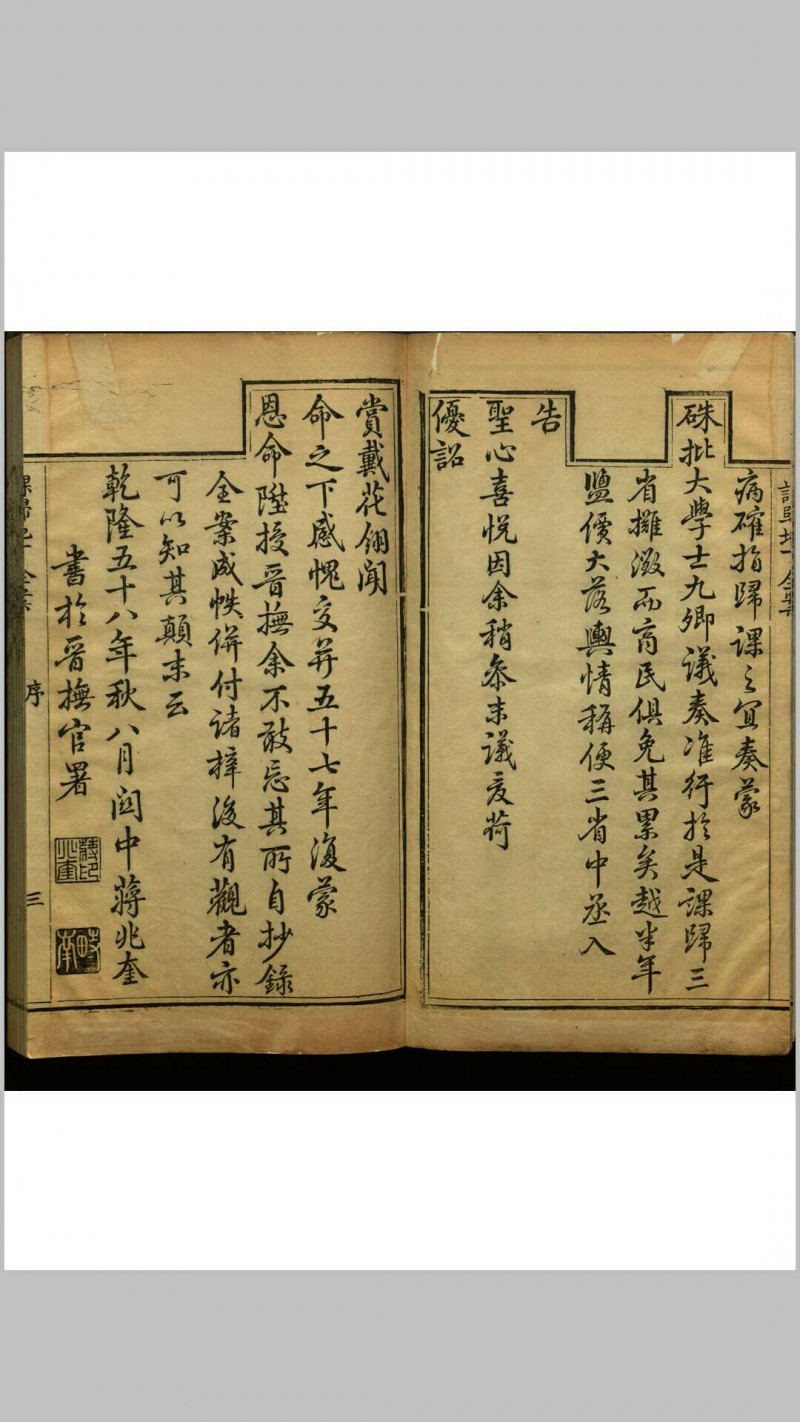 課歸地丁全案
病確指歸課之宜奏蒙
硃批大學士九卿議奏准行於是課歸三
省攤徵而商民俱免其累矣越半年
鹽價大落輿情稱便三省中丞入
告
聖心喜悅因余稍參末議爰荷
優詔
賞戴花翎聞
命之下感愧交并五十七年復蒙
恩命陞授晉撫余不敢忘其所自抄錄
全案成帙併付諸梓後有觀者亦
可以知其顛末云
乾隆五十八年秋八月關中蔣兆奎
書於晉撫官署
課歸地丁全案 序 三